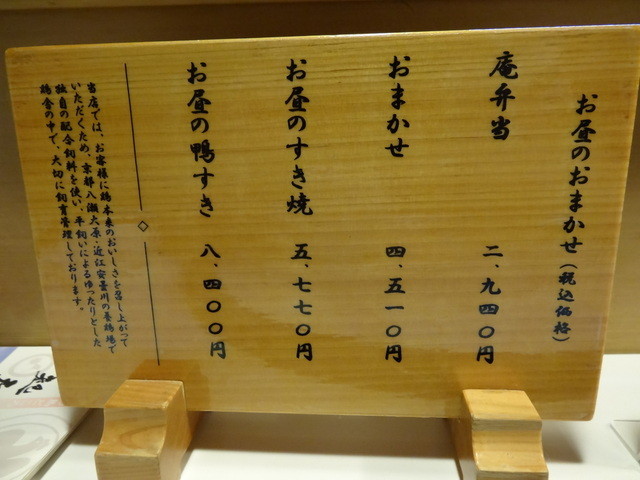 お昼のおまかせ(税込価格)
庵弁当 二、九四〇円
おまかせ 四、五一〇円
お昼のすき焼 五、七七〇円
お昼の鴨すき 八、四〇〇円
当店では、お客様に鶏本来のおいしさを召し上がって
いただくため、京都八瀬大原・近江安曇川の養鶏場で
独自の配合飼料を使い、平飼いによるゆったりとした
鶏舎の中で、大切に飼育管理しております。